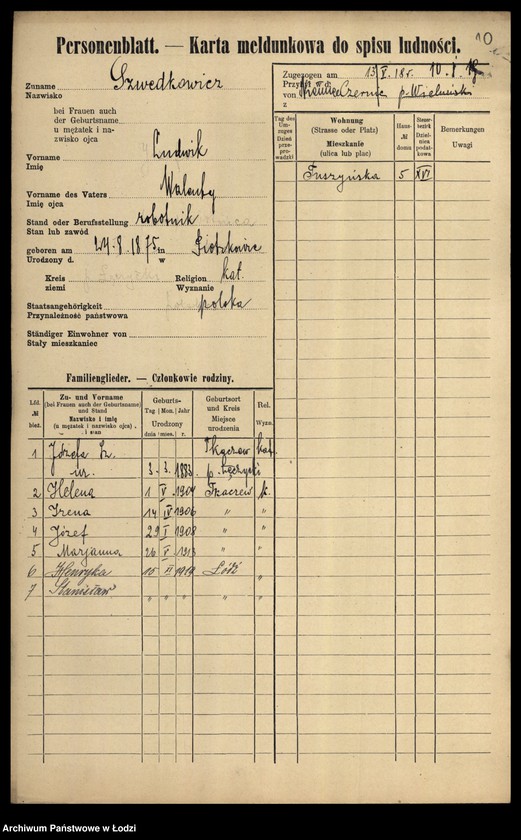 10
Personenblatt. — Karta meldunkowa do spisu ludności.
Zuname
Nazwisko
Szwedkowicz
bei Frauen auch
der Geburtsname
u mężatek i na-
zwisko ojca
Vorname
Imię
Ludwik
Vorname des Vaters
Imię ojca
Walenty
Stand oder Berufsstellung
Stan lub zawód
robotnik
geboren am 24.8.1875 in
Urodzony d. w
Kreis
ziemi
Religion kat.
Wyznanie
Staatsangehörigkeit
Przynależność państwowa
polska
Ständiger Einwohner von
Stały mieszkaniec
Zugezogen am 13 V. 18 r. 10. I.
von
z
Czernic p. Wieluński
Tag des Um-
zuges
Dzień
prze-
prowadzki
Wohnung
(Strasse oder Platz)
Mieszkanie
(ulica lub plac)
Haus-
№
domu
Steuer-
bezirk
Dziel-
nica
podat-
kowa
Bemerkungen
Uwagi
Tuszyńska 5 XVI
Familienglieder. — Członkowie rodziny.
Lfd.
№
bież.
Zu- und Vorname
(bei Frauen auch der Geburtsname)
und Stand
Nazwisko i imię
(u mężatek i nazwisko ojca),
i stan
Geburts-
Tag Mon. Jahr
Urodzony
dnia mies. r.
Geburtsort
und Kreis
Miejsce
urodzenia
Rel.
Wyzn.
1 Józefa Sz. Tkaczew kat.
ur. 3. 3. 1883 p. Łęczycki
2 Helena 1 V 1904 Tkaczew k.
3 Irena 14 IV 1906 " "
4 Józef 29 I 1908 " "
5 Marjanna 26 V 1913 " "
6 Henryka 15 II 1919 Łódź "
7 Stanisław " " " " "
Archiwum Państwowe w Łodzi